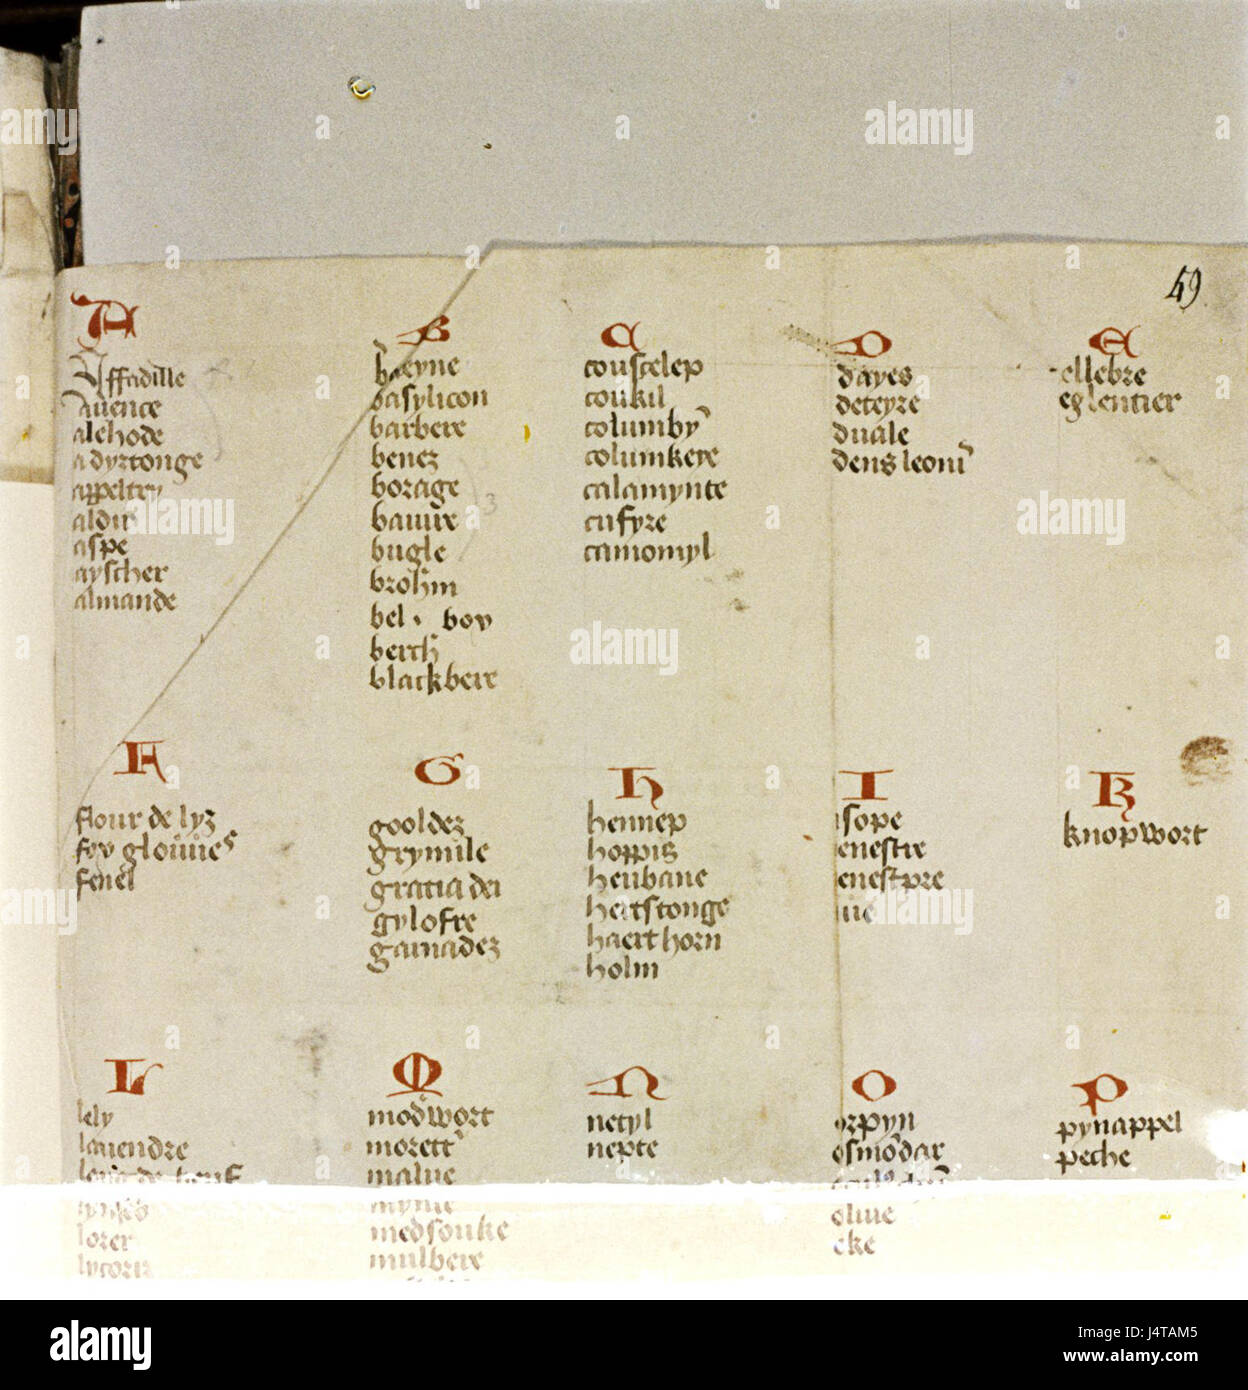 49
A
Affadille
Auence
alehode
adyrtonge
appeltry
aldir
aspe
ayscher
almande
B
basylicon
barbere
benez
borage
bugle
brohm
bel · boy
berth
blackbere
C
couscelep
coukil
columby
columkere
calamynte
cufyre
camomyl
D
dayes
deteyre
duale
dens leoni
E
ellebre
eglentier
F
flour de lyz
fenel
G
gooldez
grymile
gratia dei
gylofre
H
hennep
hoppis
henbane
hertstonge
haerthorn
holm
I
isope
enestre
enestpre
K
knopwort
L
lely
lauendre
lorer
M
modwort
morett
malue
medsouke
mulbere
N
netyl
nepte
O
orpyn
osmodar
oliue
eke
P
pynappel
peche
alamy
a
alamy stock photo
J4TAM5
www.alamy.com